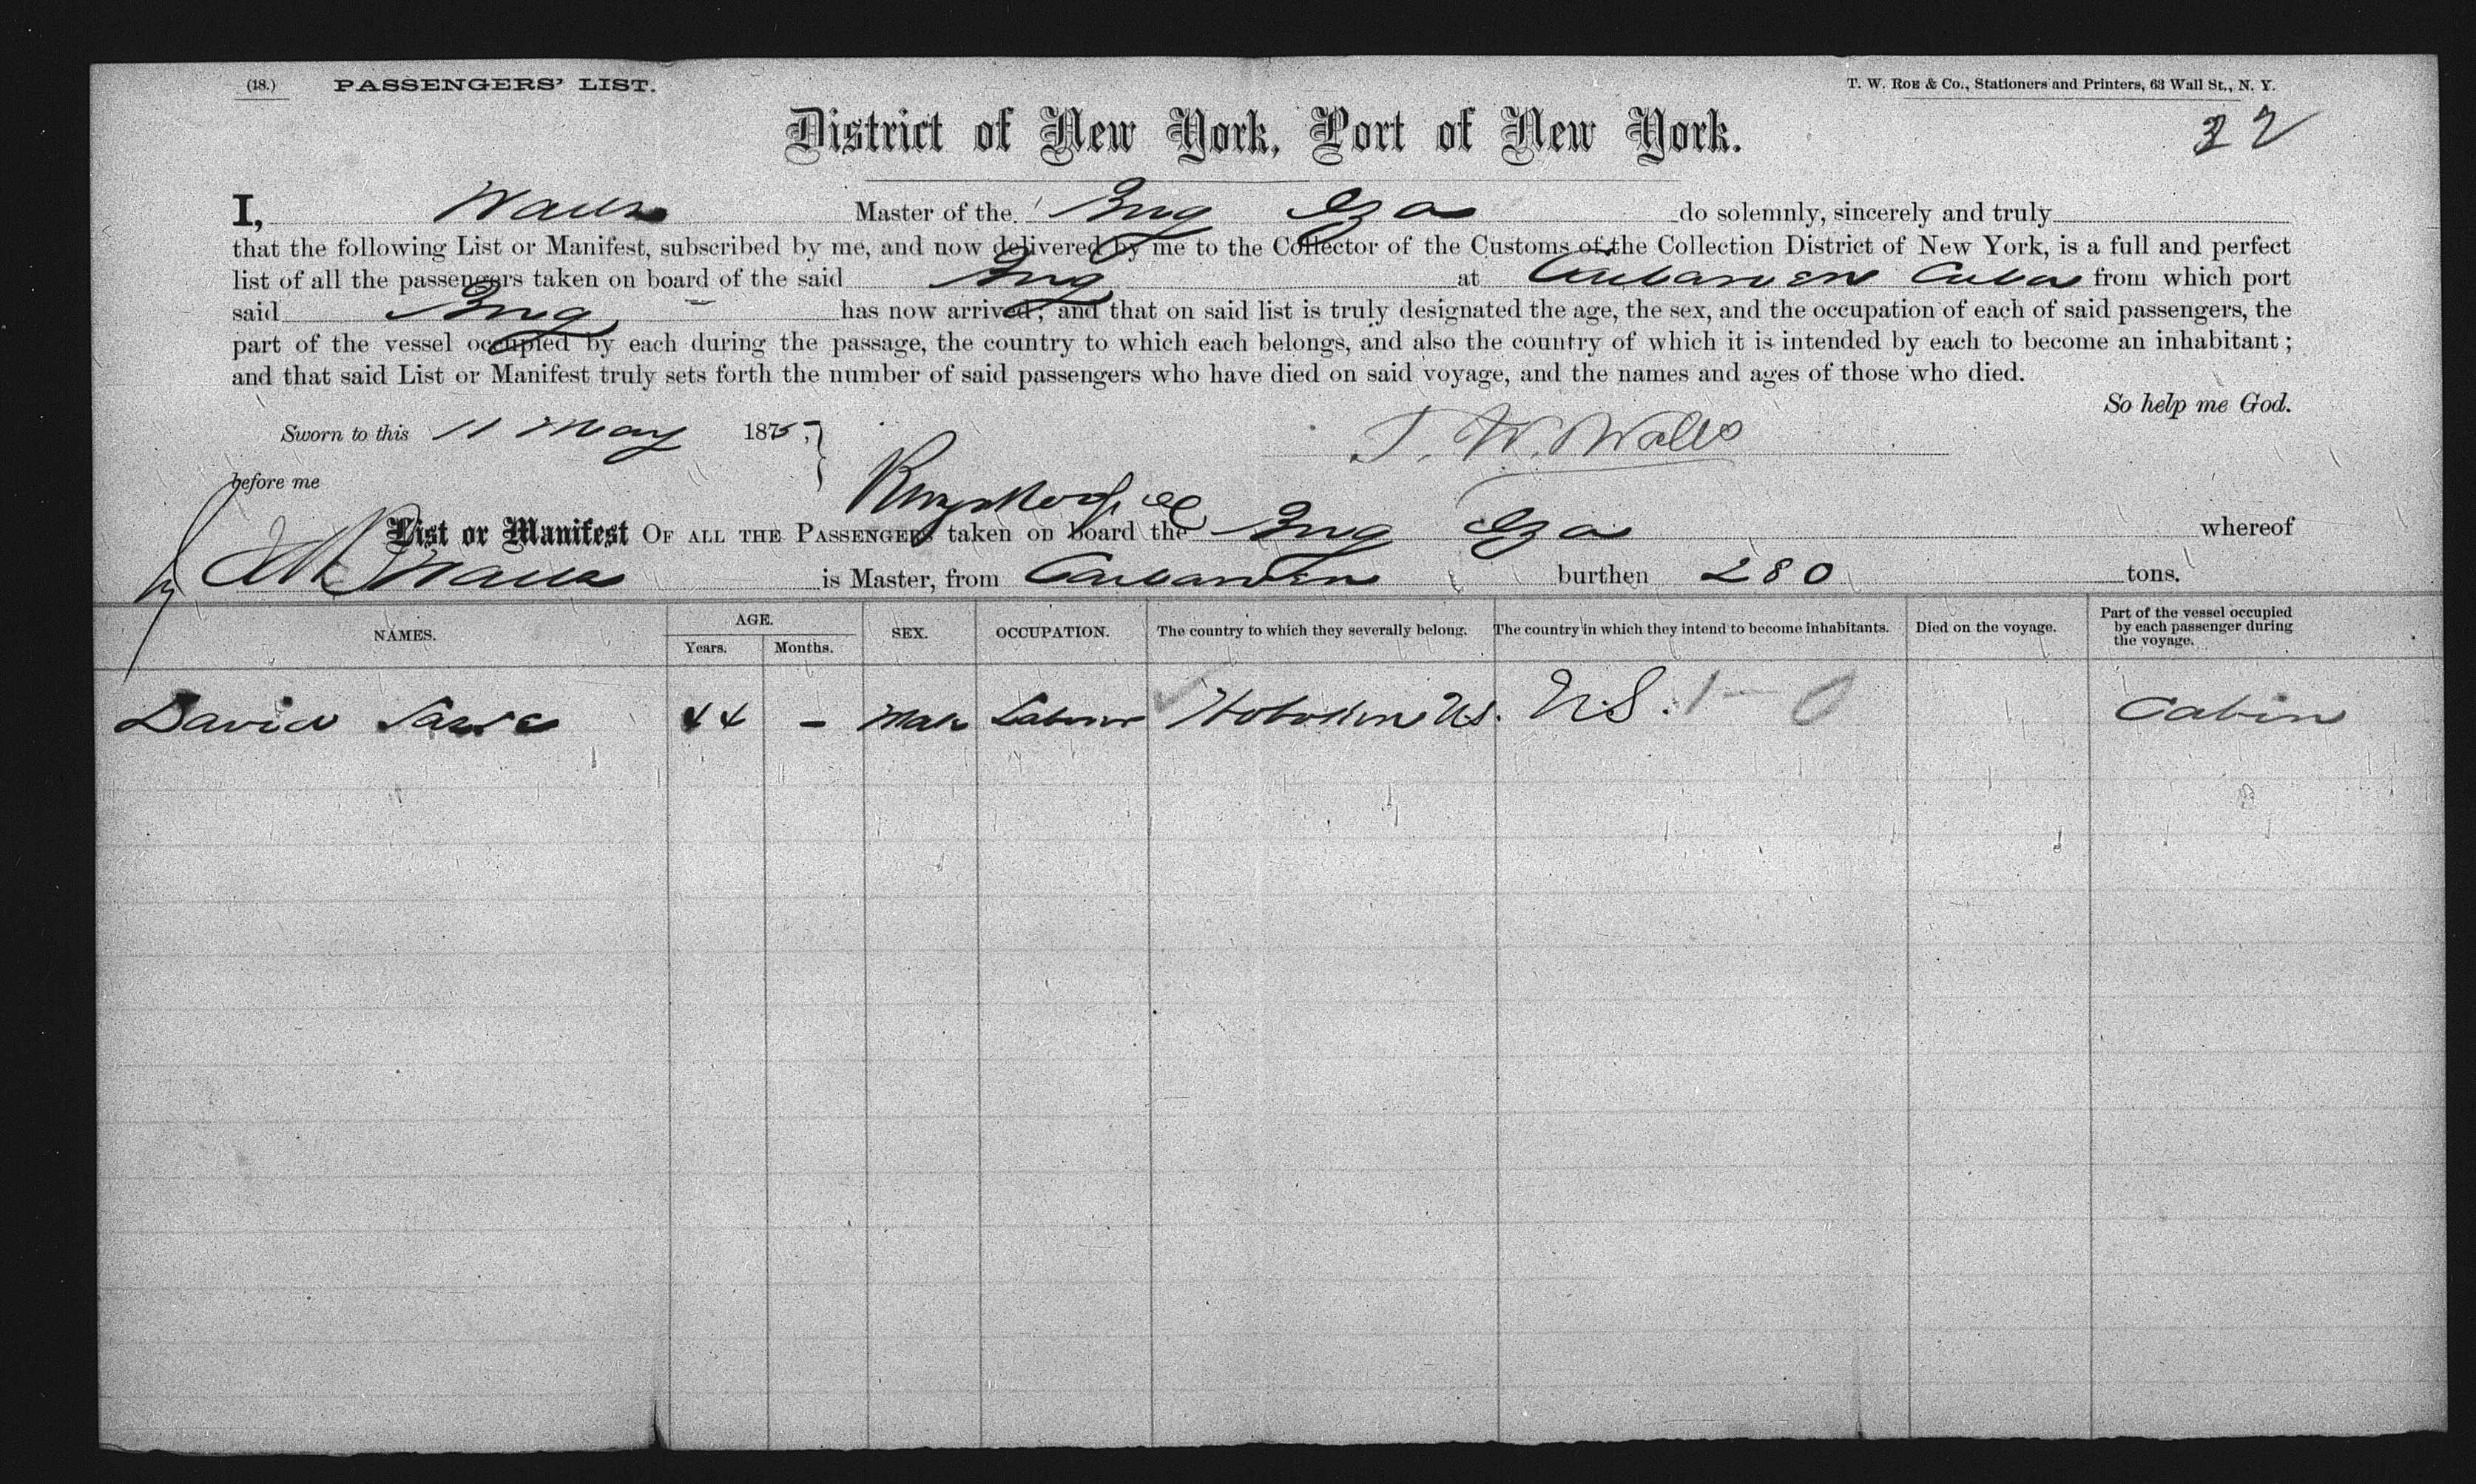 (18.) PASSENGERS' LIST. T. W. ROE & Co., Stationers and Printers, 63 Wall St., N. Y.
District of New York, Port of New York.
I, Walls Master of the Brig Eza do solemnly, sincerely and truly
that the following List or Manifest, subscribed by me, and now delivered by me to the Collector of the Customs of the Collection District of New York, is a full and perfect
list of all the passengers taken on board of the said Brig at Cuba from which port
said Brig has now arrived; and that on said list is truly designated the age, the sex, and the occupation of each of said passengers, the
part of the vessel occupied by each during the passage, the country to which each belongs, and also the country of which it is intended by each to become an inhabitant;
and that said List or Manifest truly sets forth the number of said passengers who have died on said voyage, and the names and ages of those who died.
So help me God.
Sworn to this 11 May 1875, J. W. Walls
before me
List or Manifest OF ALL THE PASSENGERS taken on board the Brig Eza whereof
Walls is Master, from burthen 280 tons.
NAMES. AGE. Years. Months. SEX. OCCUPATION. The country to which they severally belong. The country in which they intend to become inhabitants. Died on the voyage. Part of the vessel occupied by each passenger during the voyage.
David 44 - Male Labour Hoboken US. US. Cabin